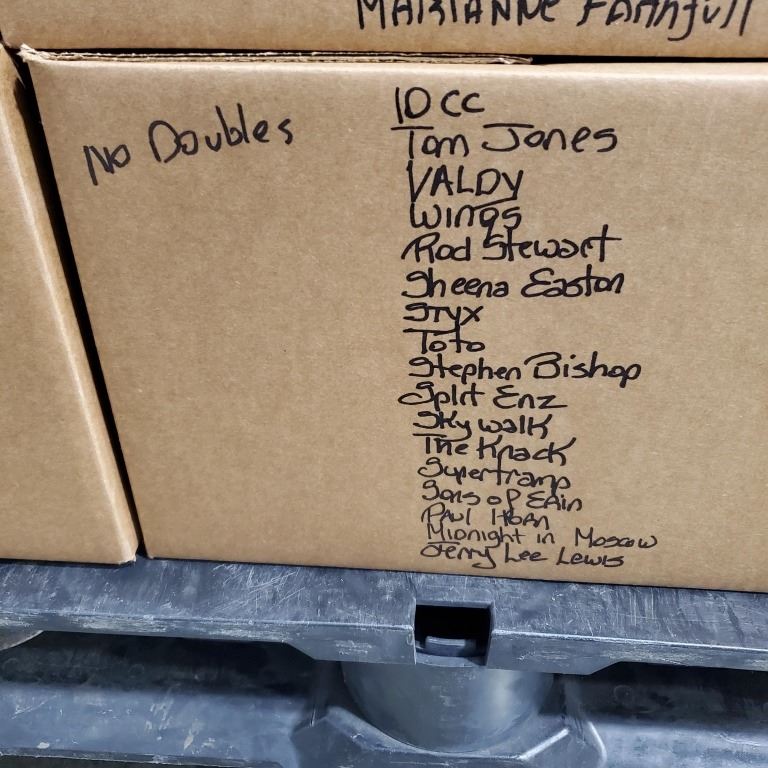 MARIANNE FAITHfull
No Doubles
10 CC
Tom Jones
VALDY
Wings
Rod Stewart
Sheena Easton
STYX
Toto
Stephen Bishop
Split Enz
Sky walk
The Knack
Supertramp
Sons of Erin
PAUL HORN
Midnight in Moscow
Jerry Lee Lewis